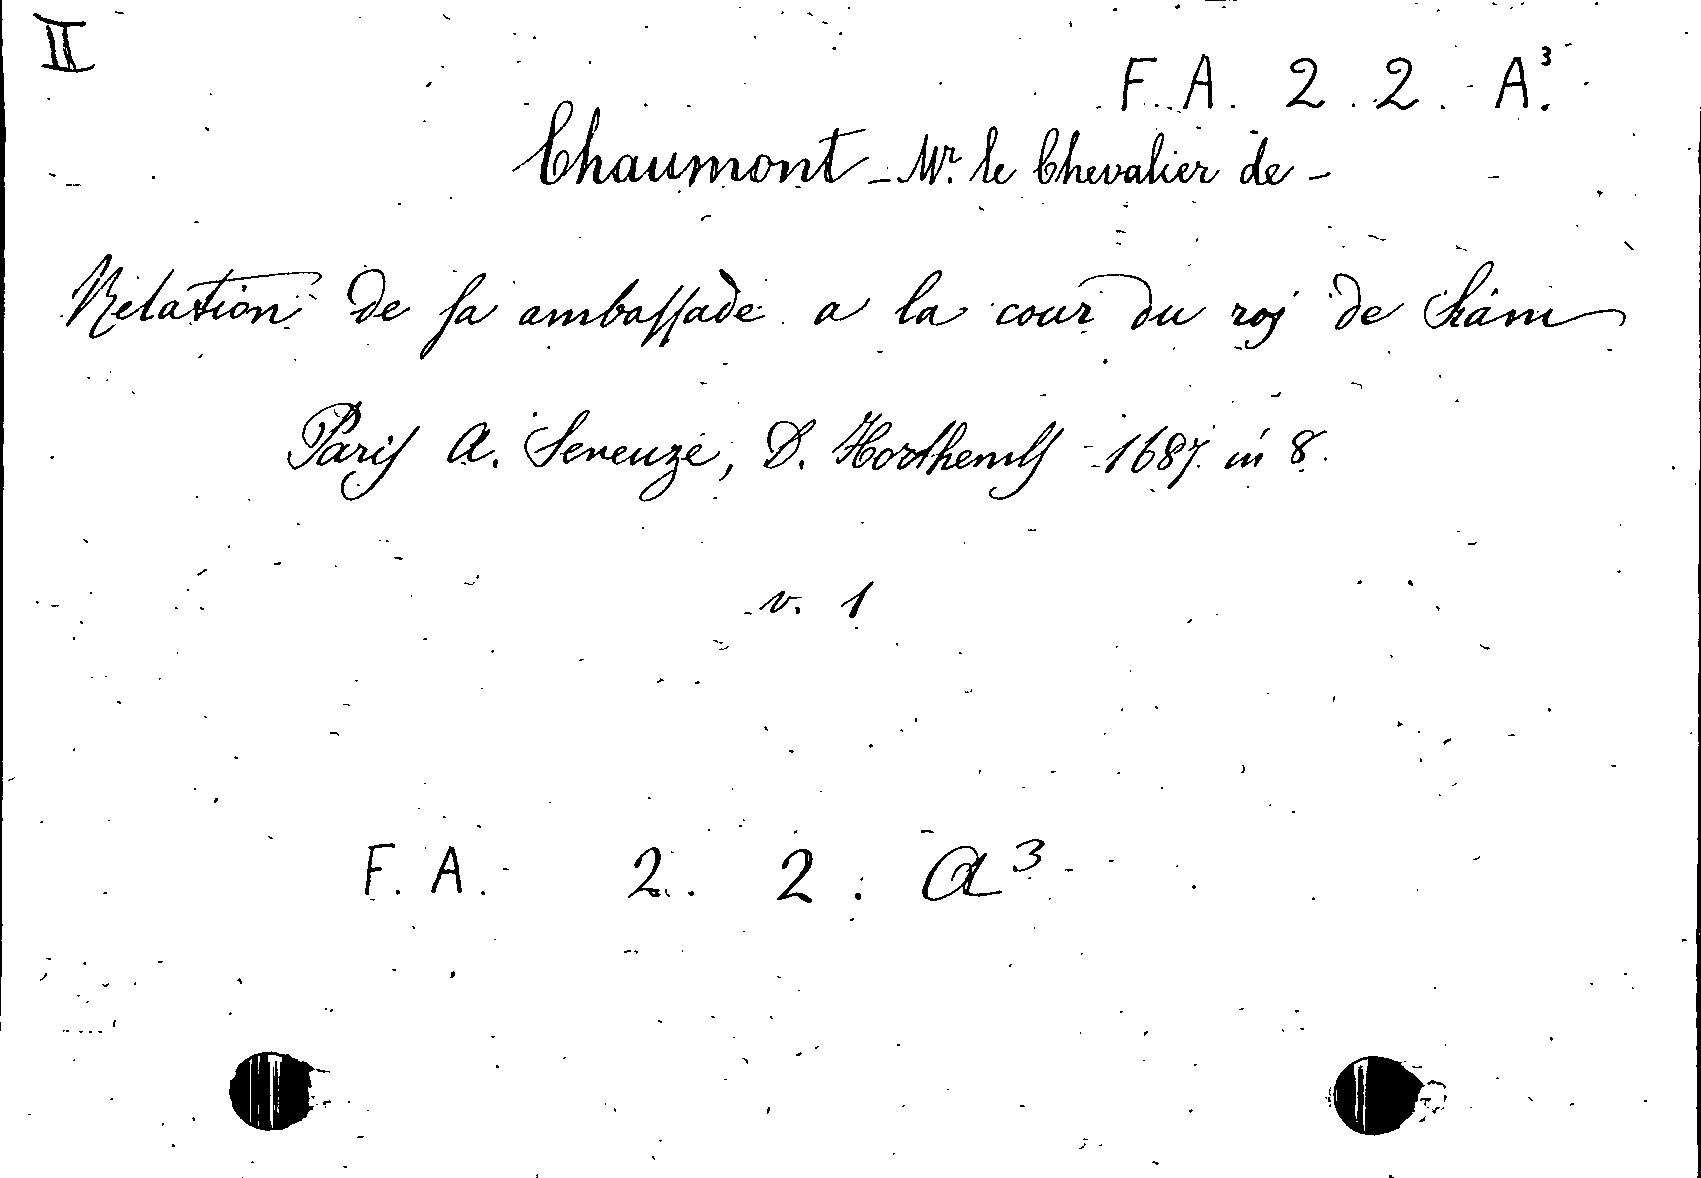 II
F. A. 2. 2. A³.
Chaumont - Mr. le Chevalier de -
Relation de sa ambassade a la cour du roj de Siam
Paris A. Seneuze, D. Horthemels 1687 in 8.
v. 1
F. A. 2. 2. A³